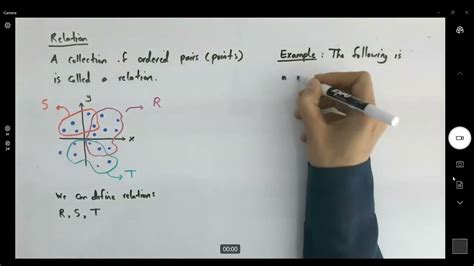 Camera
Relation
A collection of ordered pairs (points)
is called a relation.
S
y
R
x
T
We can define relations
R, S, T
Example: The following is
a
00:00